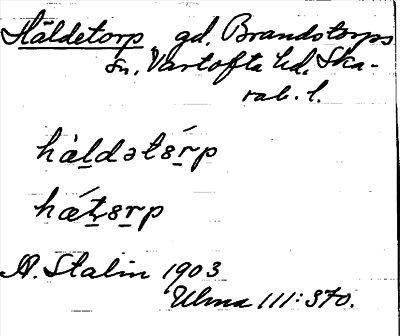 Häldetorp gd. Brandstorps
sn. Vartofta hd, Ska-
rab. l.
hàḻdətsṟ́p
hǽṯsṟp
A. Stalin 1903
Ulma 111: 370.